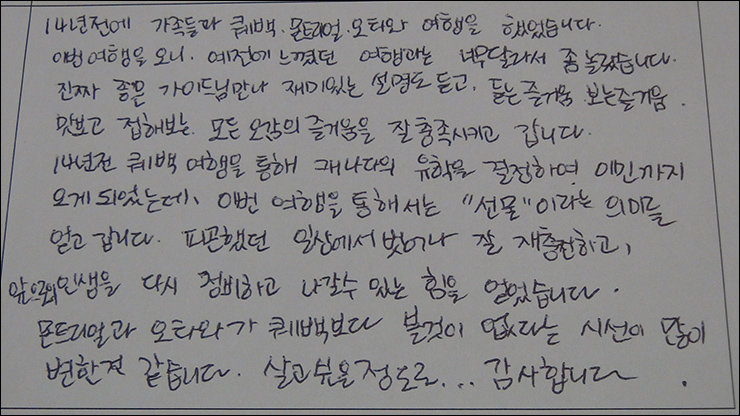 14년전에 가족들과 퀘백. 몬트리얼. 오타와 여행을 했었습니다.
이번 여행을 오니. 예전에 느꼈던 여행과는 너무달라서 좀 놀랐습니다.
진짜 좋은 가이드님만나 재미있는 설명도 듣고. 듣는 즐거움. 보는즐거움.
맛보고 접해보는. 모든 오감의 즐거움을 잘 충족시키고 갑니다.
14년전 퀘백 여행을 통해 캐나다의 유학을 결정하여 이민까지
오게 되었는데, 이번 여행을 통해서는 "선물"이라는 의미를
얻고 갑니다. 피곤했던 일상에서 벗어나 잘 재충전하고,
앞으로의 인생을 다시 점비하고 나갈수 있는 힘을 얻었습니다.
몬트리얼과 오타와가 퀘백보다 볼것이 없다는 시선이 많이
변한것 같습니다. 살고싶을정도로... 감사합니다.